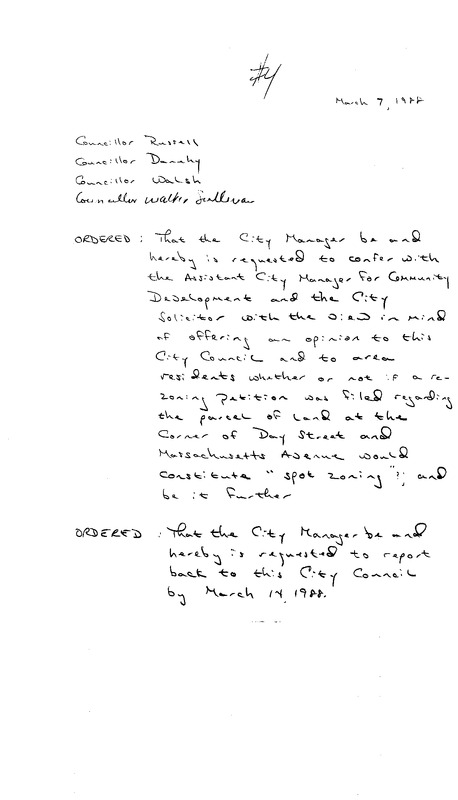 #4
March 7, 1988
Councillor Russell
Councillor Danehy
Councillor Walsh
Councillor Walter Sullivan
ORDERED : That the City Manager be and
hereby is requested to confer with
the Assistant City Manager for Community
Development and the City
Solicitor with the view in mind
of offering an opinion to this
City Council and to area
residents whether or not if a re-
zoning petition was filed regarding
the parcel of land at the
Corner of Day Street and
Massachusetts Avenue would
constitute "spot zoning"; and
be it further
ORDERED : That the City Manager be and
hereby is requested to report
back to this City Council
by March 14, 1988.